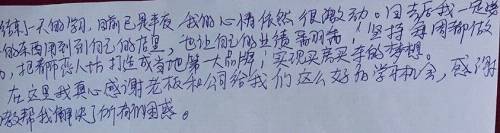 结束一天的学习，目前已是半夜 我的心情依然很激动。回去后我一定要
的东西用到到自己的店里，也让自己的业绩翻翻，坚持每周都做
，把都市恋人坊打造成当地第一大品牌，实现买房买车的梦想。
在这里我真心感谢老板和公司给我们这么好的学习机会，感谢
教帮我解决了所有的困惑。